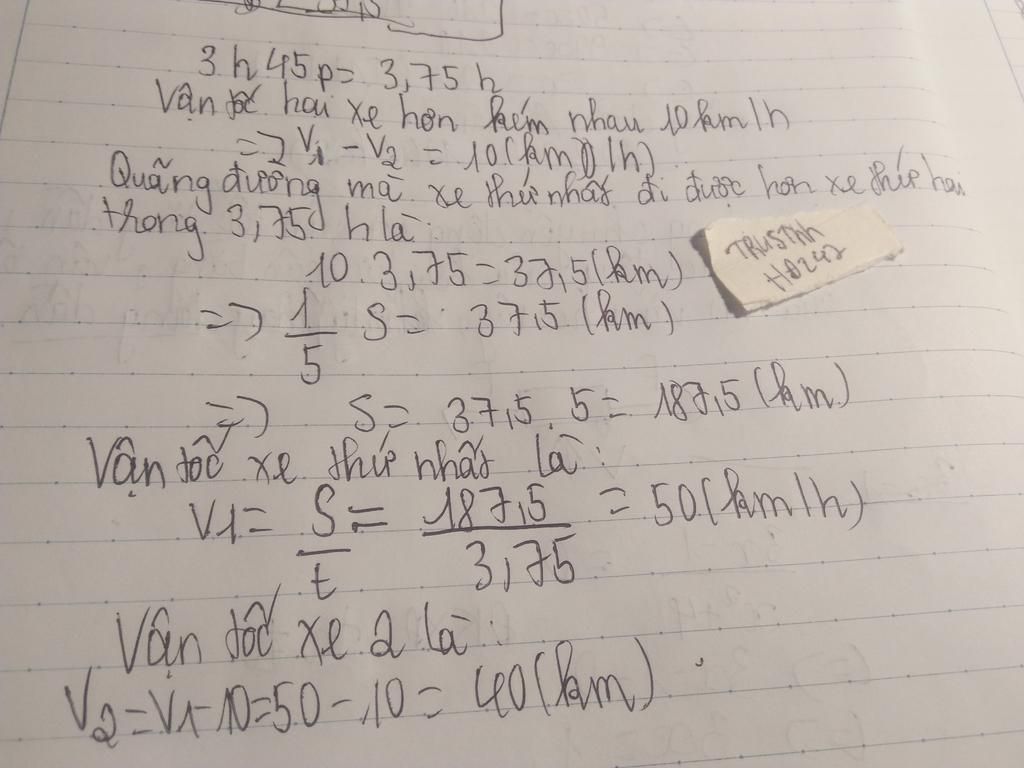 3 h 45p = 3,75 h
Vận tốc hai xe hơn kém nhau 10km/h
=> V1 - V2 = 10(km/h)
Quãng đường mà xe thứ nhất đi được hơn xe thứ hai
trong 3,75 h là:
10.3,75=37,5(km)
TRUSTNH
HD242
=> 1/5 S = 37,5 (km)
=> S = 37,5.5 = 187,5 (km)
Vận tốc xe thứ nhất là:
V1 = S/t = 187,5/3,75 = 50(km/h)
Vận tốc xe 2 là:
V2=V1-10=50-10=40(km)